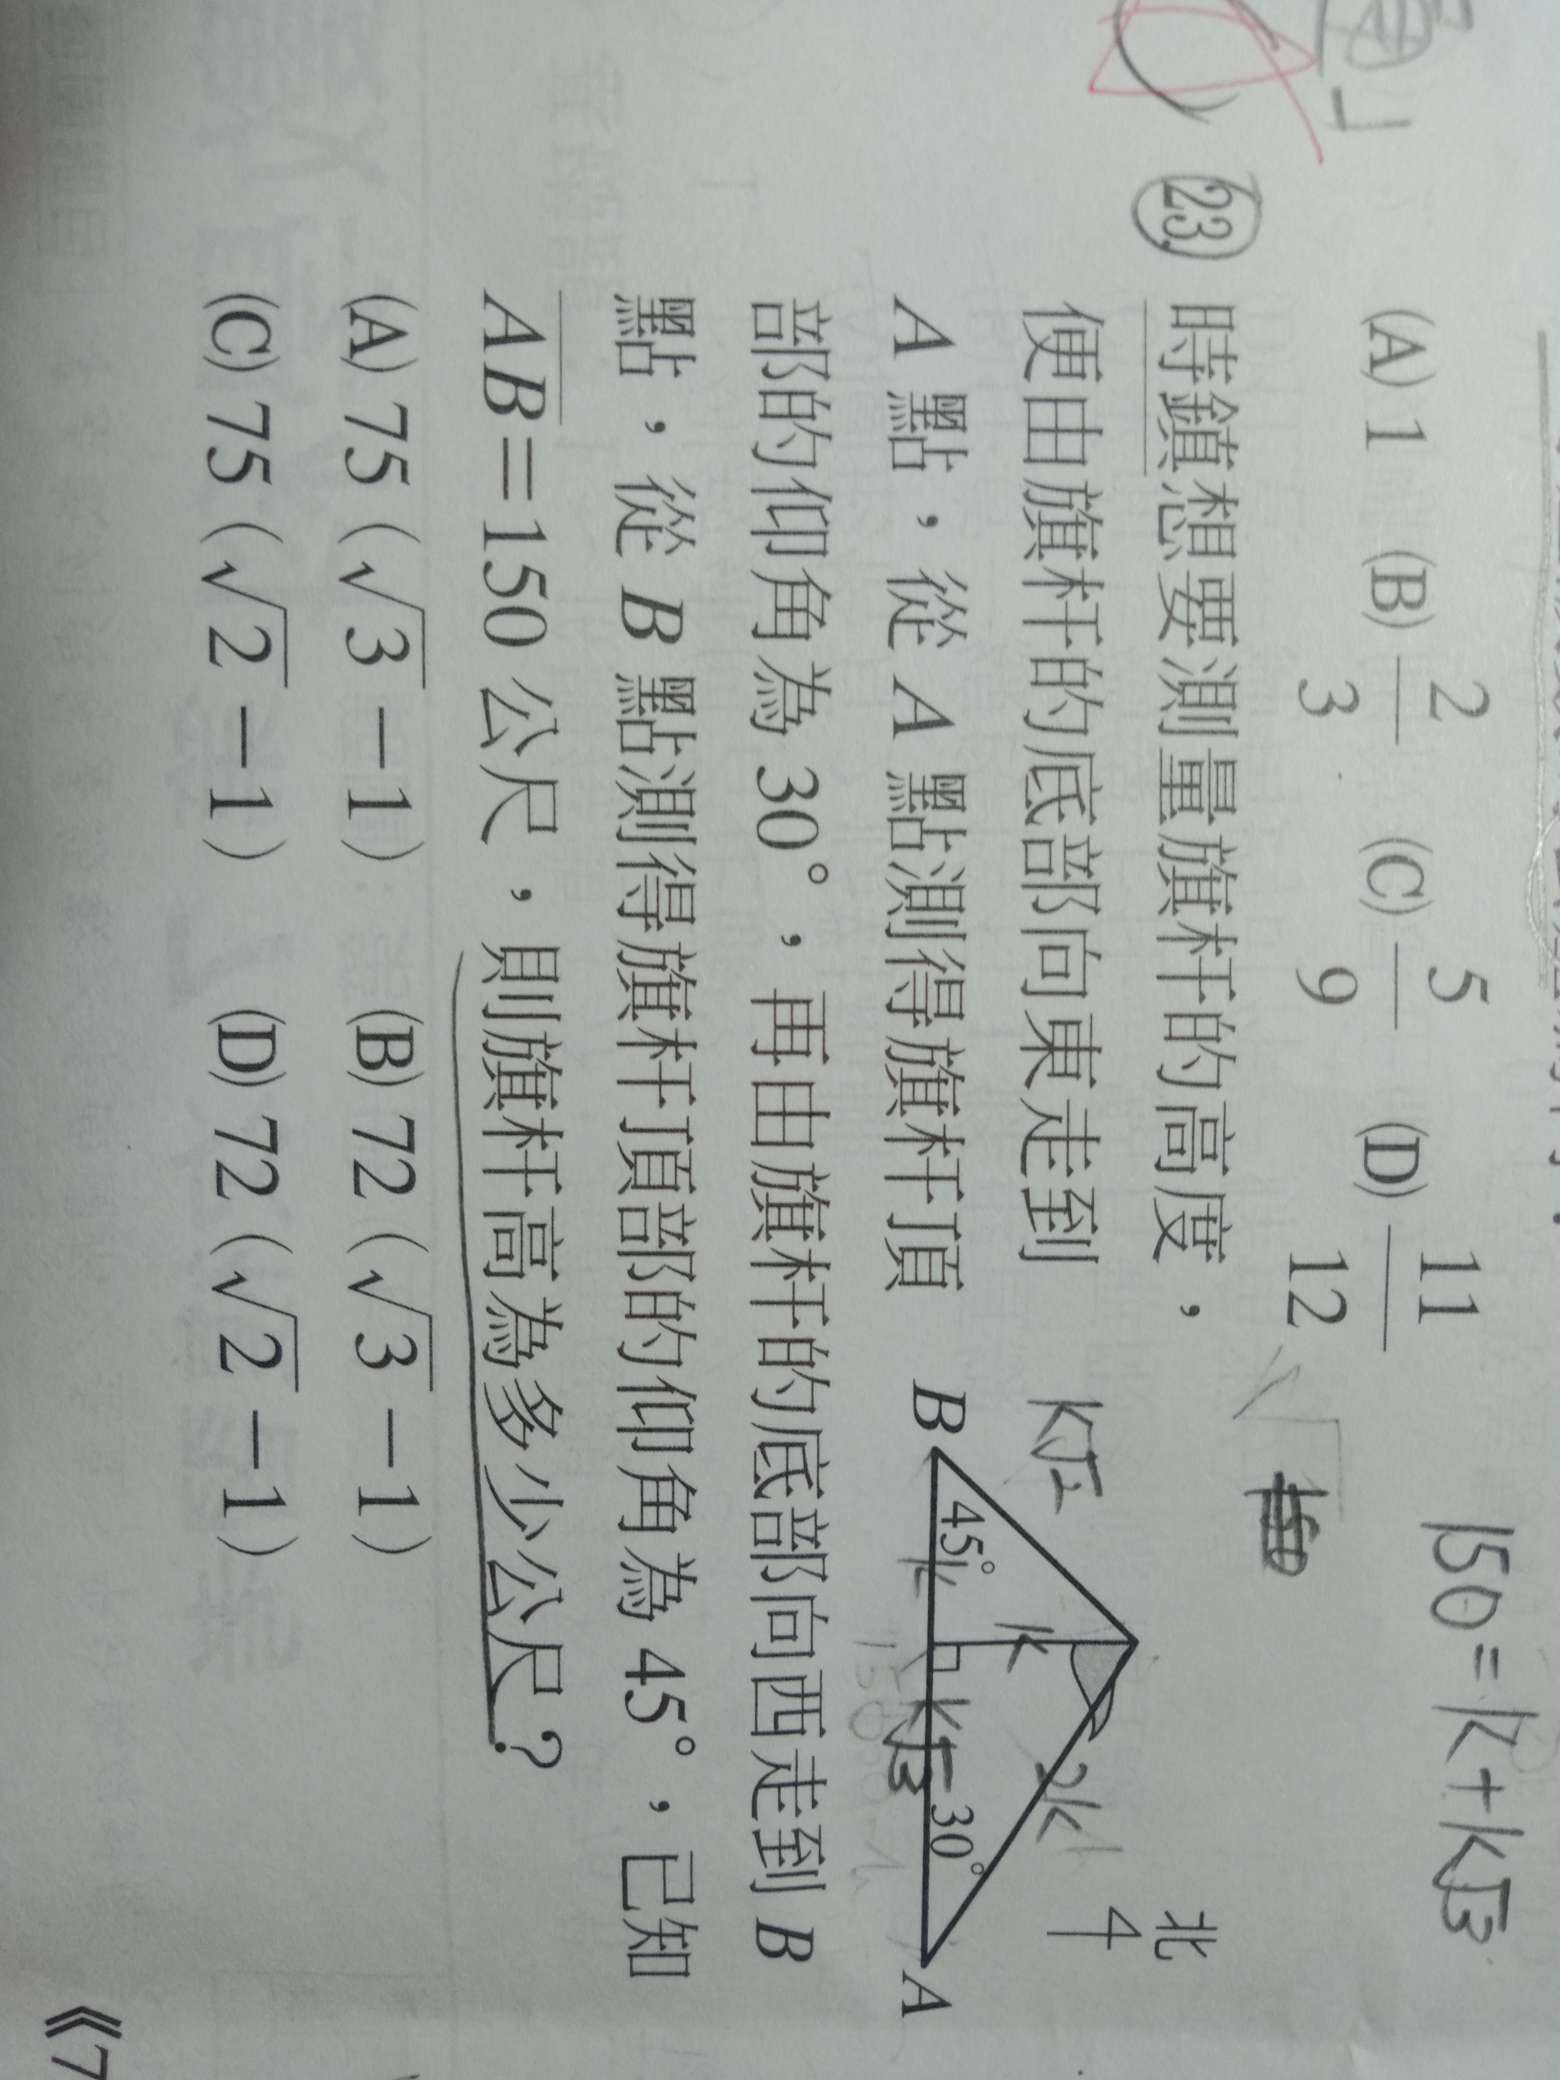 (A) 1 (B) 2/3 (C) 5/9 (D) 11/12
150=k+k√3
23. 時鎮想要測量旗杆的高度，
便由旗杆的底部向東走到
A 點，從 A 點測得旗杆頂
部的仰角為 30°，再由旗杆的底部向西走到 B
點，從 B 點測得旗杆頂部的仰角為 45°，已知
AB=150 公尺，則旗杆高為多少公尺？
(A) 75（√3－1） (B) 72（√3－1）
(C) 75（√2－1） (D) 72（√2－1）
北
k√2
k
2k
B
45°
k
k√3
30°
A
《7